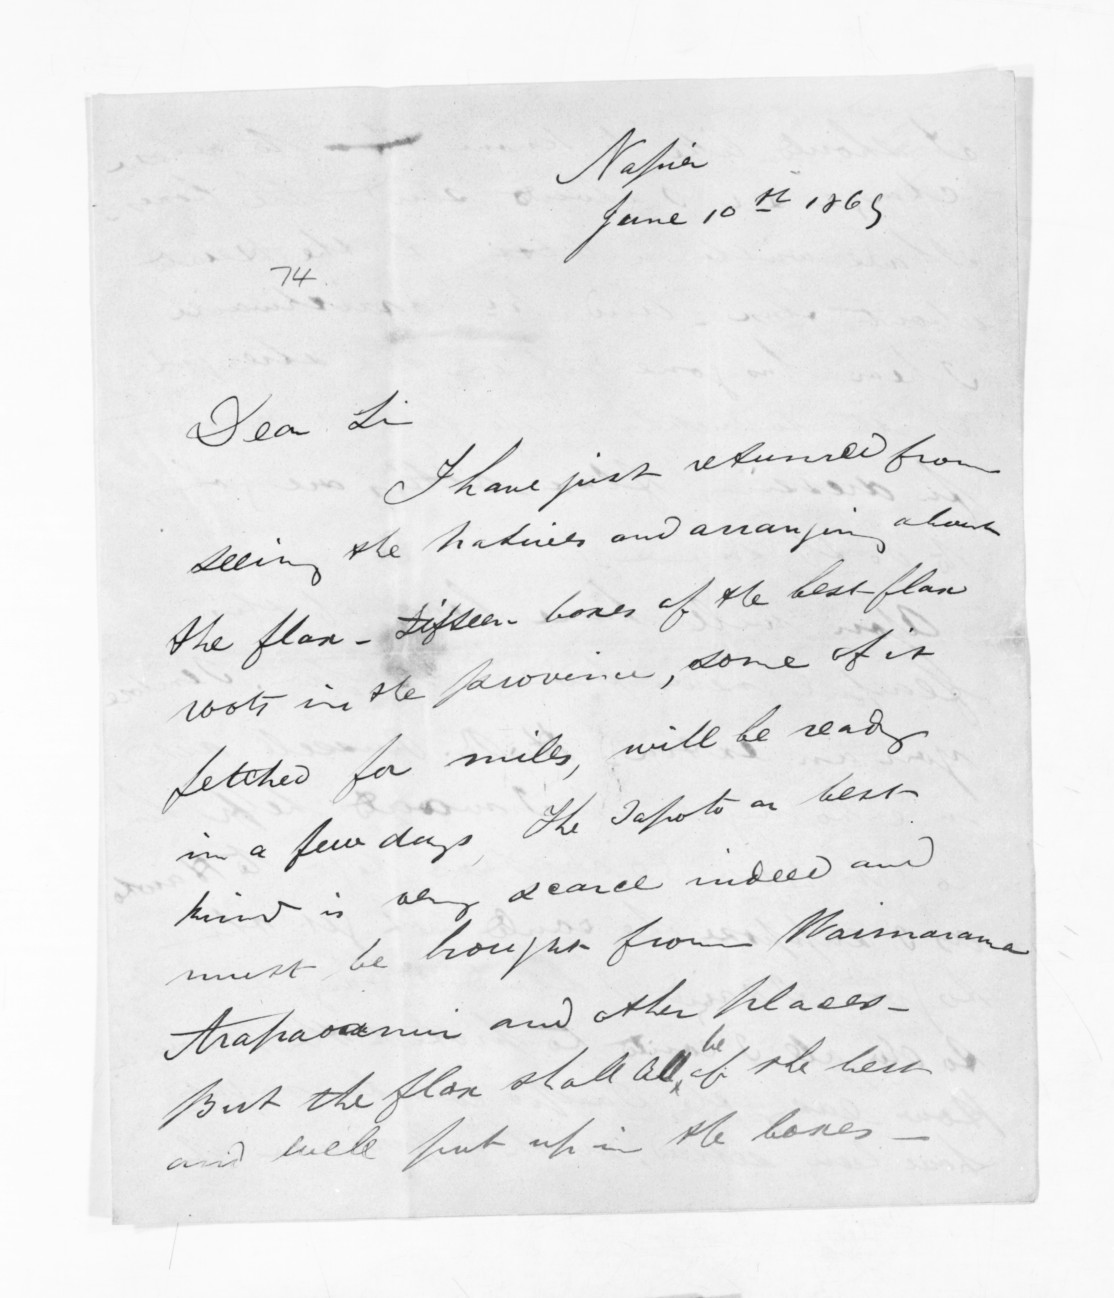 Napier
June 10th 1869
74.
Dear Sir
I have just returned from
seeing the natives and arranging about
the flax - Fifteen boxes of the best flax
roots in the province, some of it
fetched for miles, will be ready
in a few days, The Tapoto or best
kind is very scarce indeed and
must be brought from Waimarama
and other places -
But the flax shall all be of the best
and well put up in the boxes -